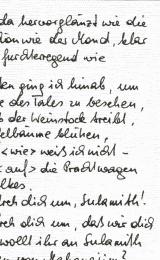 da hervorglänzt wie die
tion wie der Mond, klar
furchterregend wie
ten ging ich hinab, um
e des Tales zu besehen,
b der Weinstock treibt,
elbäume blühen,
<wie> weiß ich nicht –
<auf> die Prachtwagen
olkes.
dreh dich um, Sulamith!
reh dich um, daß wir dich
wollt ihr an Sulamith